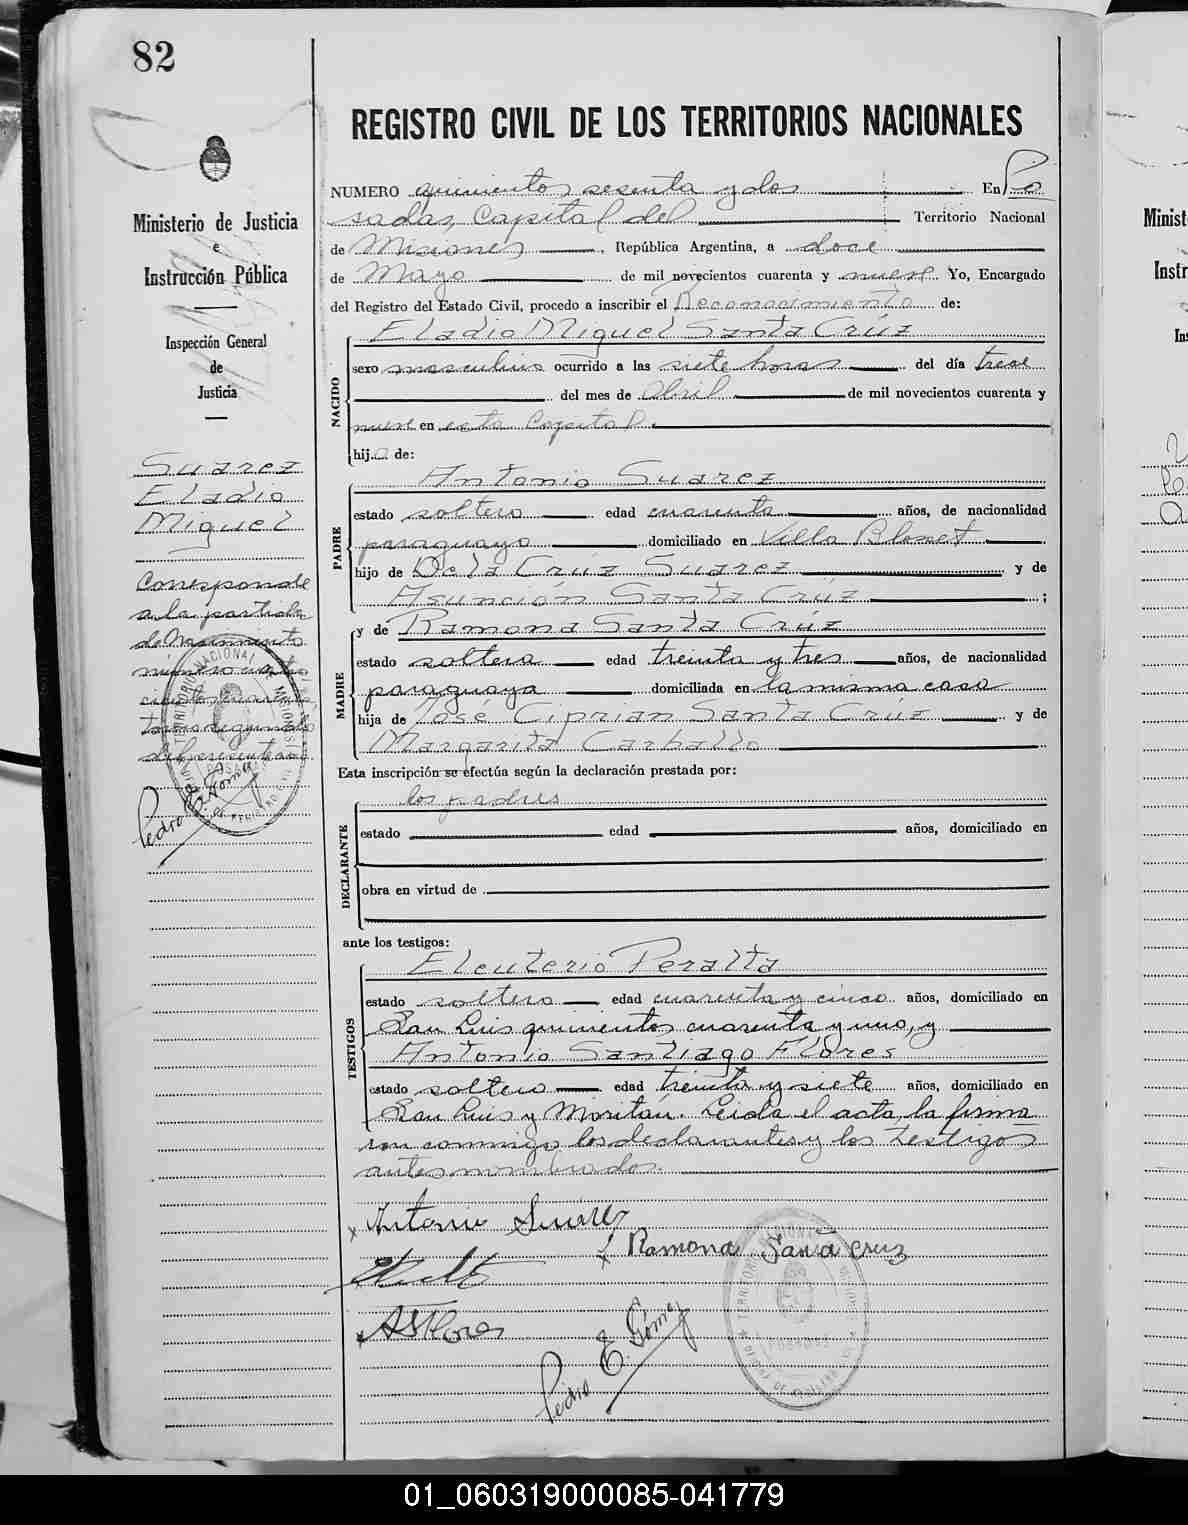 82
REGISTRO CIVIL DE LOS TERRITORIOS NACIONALES
Ministerio de Justicia
e
Instrucción Pública
Inspección General
de
Justicia
Suarez
Eladio
Miguel
Corresponde
a la partida
de Nacimiento
número cuatro
tomo segundo
del presente año
Pedro E. Gómez
NUMERO quinientos sesenta y dos En Po
sadas, Capital del Territorio Nacional
de Misiones, República Argentina, a doce
de Mayo de mil novecientos cuarenta y nueve Yo, Encargado
del Registro del Estado Civil, procedo a inscribir el Reconocimiento de:
NACIDO
Eladio Miguel Santa Crúz
sexo masculino ocurrido a las siete horas del día trece
del mes de Abril de mil novecientos cuarenta y
nueve en esta Capital.
hij.o de:
PADRE
Antonio Suarez
estado soltero edad cuarenta años, de nacionalidad
paraguayo domiciliado en Villa Blosset
hijo de De la Crúz Suarez y de
Asunción Santa Crúz ;
y de Ramona Santa Crúz
MADRE
estado soltera edad treinta y tres años, de nacionalidad
paraguaya domiciliada en la misma casa
hija de José Ciprian Santa Crúz y de
Margarita Carballo
Esta inscripción se efectúa según la declaración prestada por:
los padres
DECLARANTE
estado edad años, domiciliado en
obra en virtud de
ante los testigos:
TESTIGOS
Eleuterio Peralta
estado soltero edad cuarenta y cinco años, domiciliado en
San Luis quinientos cuarenta y uno, y
Antonio Santiago Flores
estado soltero edad treinta y siete años, domiciliado en
San Luis y Moritán. Leida el acta, la firma
ron conmigo los declarantes y los testigos
antes nombrados.
x Antonio Suárez
x Ramona Santa cruz
ASFlores
Pedro E. Gómez
Minist
Instr
Ins
01_060319000085-041779